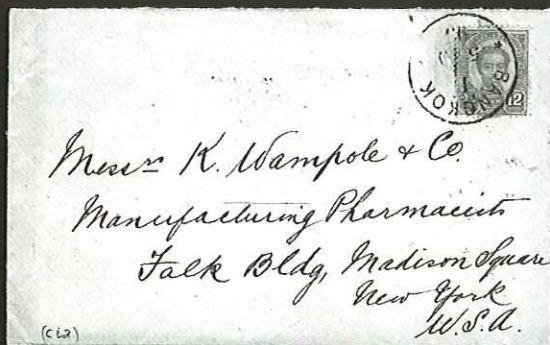 BANGKOK
12
Messrs K. Wampole & Co.
Manufacturing Pharmacists
Falk Bldg, Madison Square
New York
U.S.A.